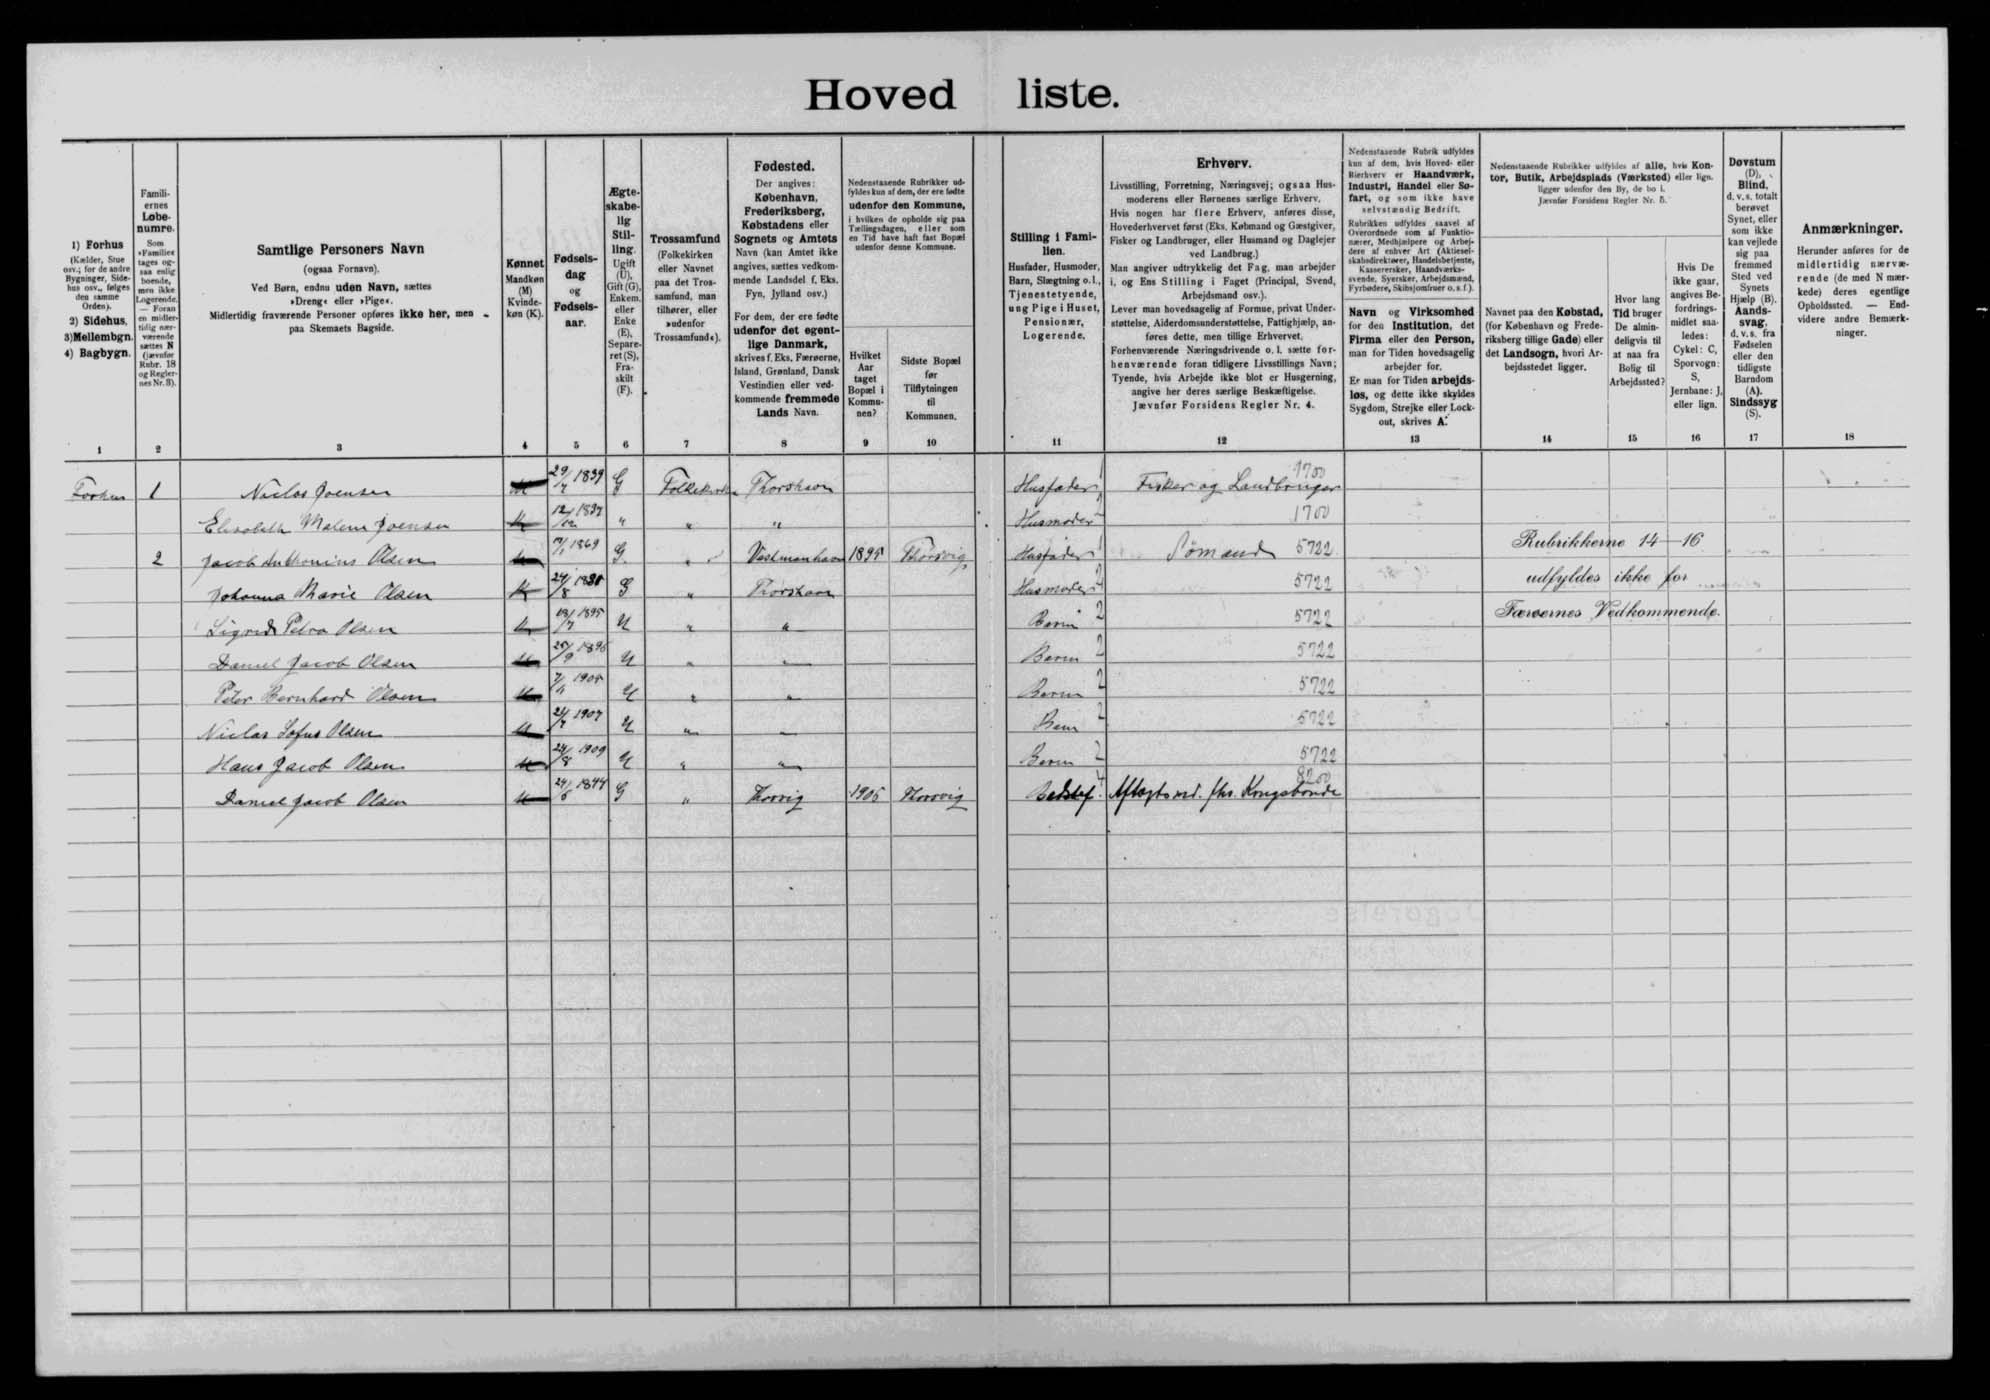 Hovedliste.
1) Forhus (Kælder, Stue osv.; for de andre Bygninger, Sidehus osv., følges den samme Orden). 2) Sidehus, 3) Mellembgn. 4) Bagbygn.
Familiernes Løbenumre. Som »Familie« tages ogsaa enlig boende, men ikke Logerende. — Foran en midlertidig nærværende sættes N (jævnfør Rubr. 18 og Regler-nes Nr. 3).
Samtlige Personers Navn (ogsaa Fornavn). Ved Børn, endnu uden Navn, sættes »Dreng« eller »Pige«. Midlertidig fraværende Personer opføres ikke her, men paa Skemaets Bagside.
Kønnet Mandkøn (M) Kvindekøn (K).
Fødselsdag og Fødselsaar.
Ægteskabelig Stilling. Ugift (U), Gift (G), Enkem. eller Enke (E), Separeret (S), Fraskilt (F).
Trossamfund (Folkekirken eller Navnet paa det Trossamfund, man tilhører, eller »udenfor Trossamfund«).
Fødested. Der angives: København, Frederiksberg, Købstadens eller Sognets og Amtets Navn (kan Amtet ikke angives, sættes vedkommende Landsdel f. Eks. Fyn, Jylland osv.) For dem, der ere fødte udenfor det egentlige Danmark, skrives f. Eks. Færøerne, Island, Grønland, Dansk Vestindien eller vedkommende fremmede Lands Navn.
Nedenstaaende Rubrikker udfyldes kun af dem, der ere fødte udenfor den Kommune, i hvilken de opholde sig paa Tællingsdagen, eller som en Tid have haft fast Bopæl udenfor denne Kommune.
Hvilket Aar taget Bopæl i Kommunen?
Sidste Bopæl før Tilflytningen til Kommunen.
Stilling i Familien. Husfader, Husmoder, Barn, Slægtning o. l., Tjenestetyende, ung Pige i Huset, Pensionær, Logerende.
Erhverv. Livsstilling, Forretning, Næringsvej; ogsaa Husmoderens eller Børnenes særlige Erhverv. Hvis nogen har flere Erhverv, anføres disse, Hovederhvervet først (Eks. Købmand og Gæstgiver, Fisker og Landbruger, eller Husmand og Daglejer ved Landbrug.) Man angiver udtrykkelig det Fag, man arbejder i, og Ens Stilling i Faget (Principal, Svend, Arbejdsmand osv.). Lever man hovedsagelig af Formue, privat Understøttelse, Alderdomsunderstøttelse, Fattighjælp, anføres dette, men tillige Erhvervet. Forhenværende Næringsdrivende o. l. sætte forhenværende foran tidligere Livsstillings Navn; Tyende, hvis Arbejde ikke blot er Husgerning, angive her deres særlige Beskæftigelse. Jævnfør Forsidens Regler Nr. 4.
Nedenstaaende Rubrik udfyldes kun af dem, hvis Hoved- eller Bierhverv er Haandværk, Industri, Handel eller Søfart, og som ikke have selvstændig Bedrift. Rubrikken udfyldes saavel af Overordnede som af Funktionærer, Medhjælpere og Arbejdere af enhver Art (Aktieselskabsdirektører, Handelsbetjente, Kasserersker, Haandværkssvende, Syersker, Arbejdsmænd, Fyrbødere, Skibsjomfruer o. s. f.).
Navn og Virksomhed for den Institution, det Firma eller den Person, man for Tiden hovedsagelig arbejder for. Er man for Tiden arbejdsløs, og dette ikke skyldes Sygdom, Strejke eller Lockout, skrives A.
Nedenstaaende Rubrikker udfyldes af alle, hvis Kontor, Butik, Arbejdsplads (Værksted) eller lign. ligger udenfor den By, de bo i. Jævnfør Forsidens Regler Nr. 5.
Navnet paa den Købstad, (for København og Frederiksberg tillige Gade) eller det Landsogn, hvori Arbejdsstedet ligger.
Hvor lang Tid bruger De almindeligvis til at naa fra Bolig til Arbejdssted?
Hvis De ikke gaar, angives Befordringsmidlet saaledes: Cykel: C, Sporvogn: S, Jernbane: J, eller lign.
Døvstum (D), Blind, d. v. s. totalt berøvet Synet, eller som ikke kan vejlede sig paa fremmed Sted ved Synets Hjælp (B). Aandssvag, d. v. s. fra Fødselen eller den tidligste Barndom (A). Sindssyg (S).
Anmærkninger. Herunder anføres for de midlertidig nærværende (de med N mærkede) deres egentlige Opholdssted. — Endvidere andre Bemærkninger.
1 2 3 4 5 6 7 8 9 10 11 12 13 14 15 16 17 18
Forhus 1 Niclas Joensen 29/7 1839 G Folkekirken Thorshavn Husfader 1 Fisker og Landbruger 1700
Elisabeth Malene Joensen K 12/12 1837 " " " Husmoder 2 1700
2 Jacob Anthonius Olsen 1869 G. " Vestmanhavn 1895 Thorsvig Husfader 1 Sømand 5722 Rubrikkerne 14—16
Johanna Marie Olsen K 24/8 G " Thorshavn Husmoder 2 5722 udfyldes ikke for
Sigrid Petra Olsen 13/7 1895 U " " Barn 2 5722 Færøernes Vedkommende.
Daniel Jacob Olsen 25/9 1896 U " " Barn 2 5722
Peter Bernhard Olsen 1905 U " " Barn 2 5722
Niclas Sofus Olsen 1907 U " " Barn 2 5722
Hans Jacob Olsen 24/8 1909 U " " Barn 2 5722
Daniel Jacob Olsen 24/6 1844 G " Thorsvig 1905 Thorsvig Bedstef. 4 Aftægtsmd. fhv. Kongsbonde 8200